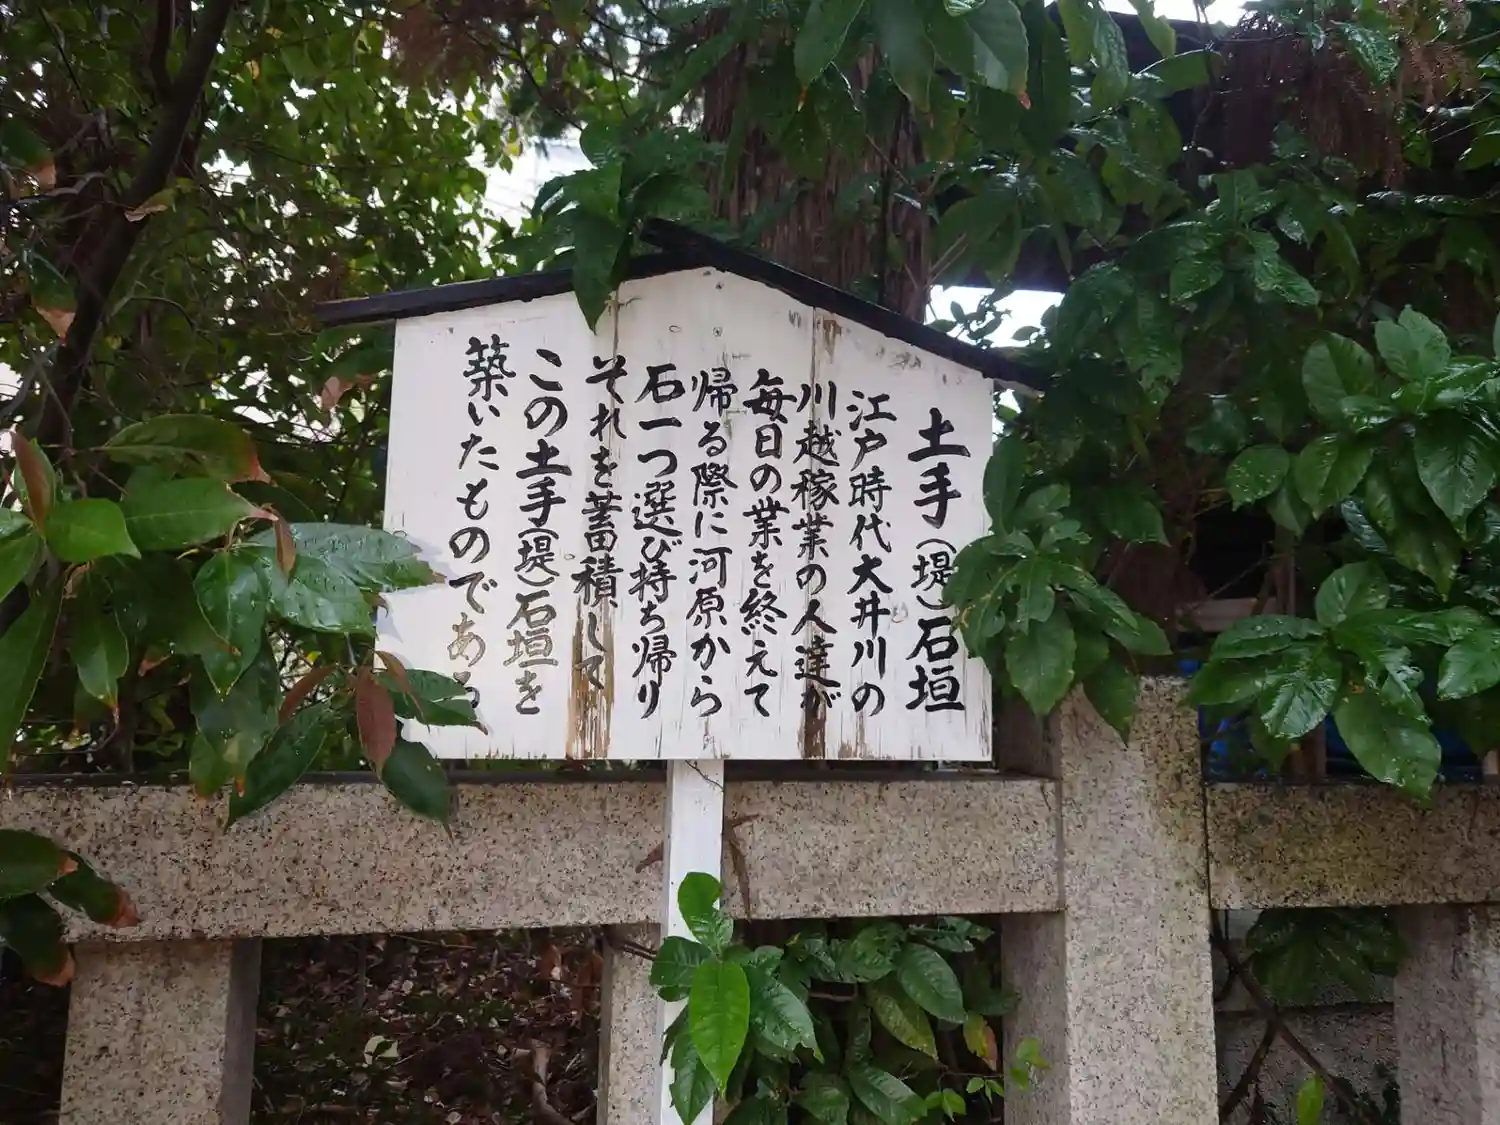 土手(堤)石垣
江戸時代大井川の
川越稼業の人達が
毎日の業を終えて
帰る際に河原から
石一つ選び持ち帰り
それを蓄積して
この土手(堤)石垣を
築いたものである